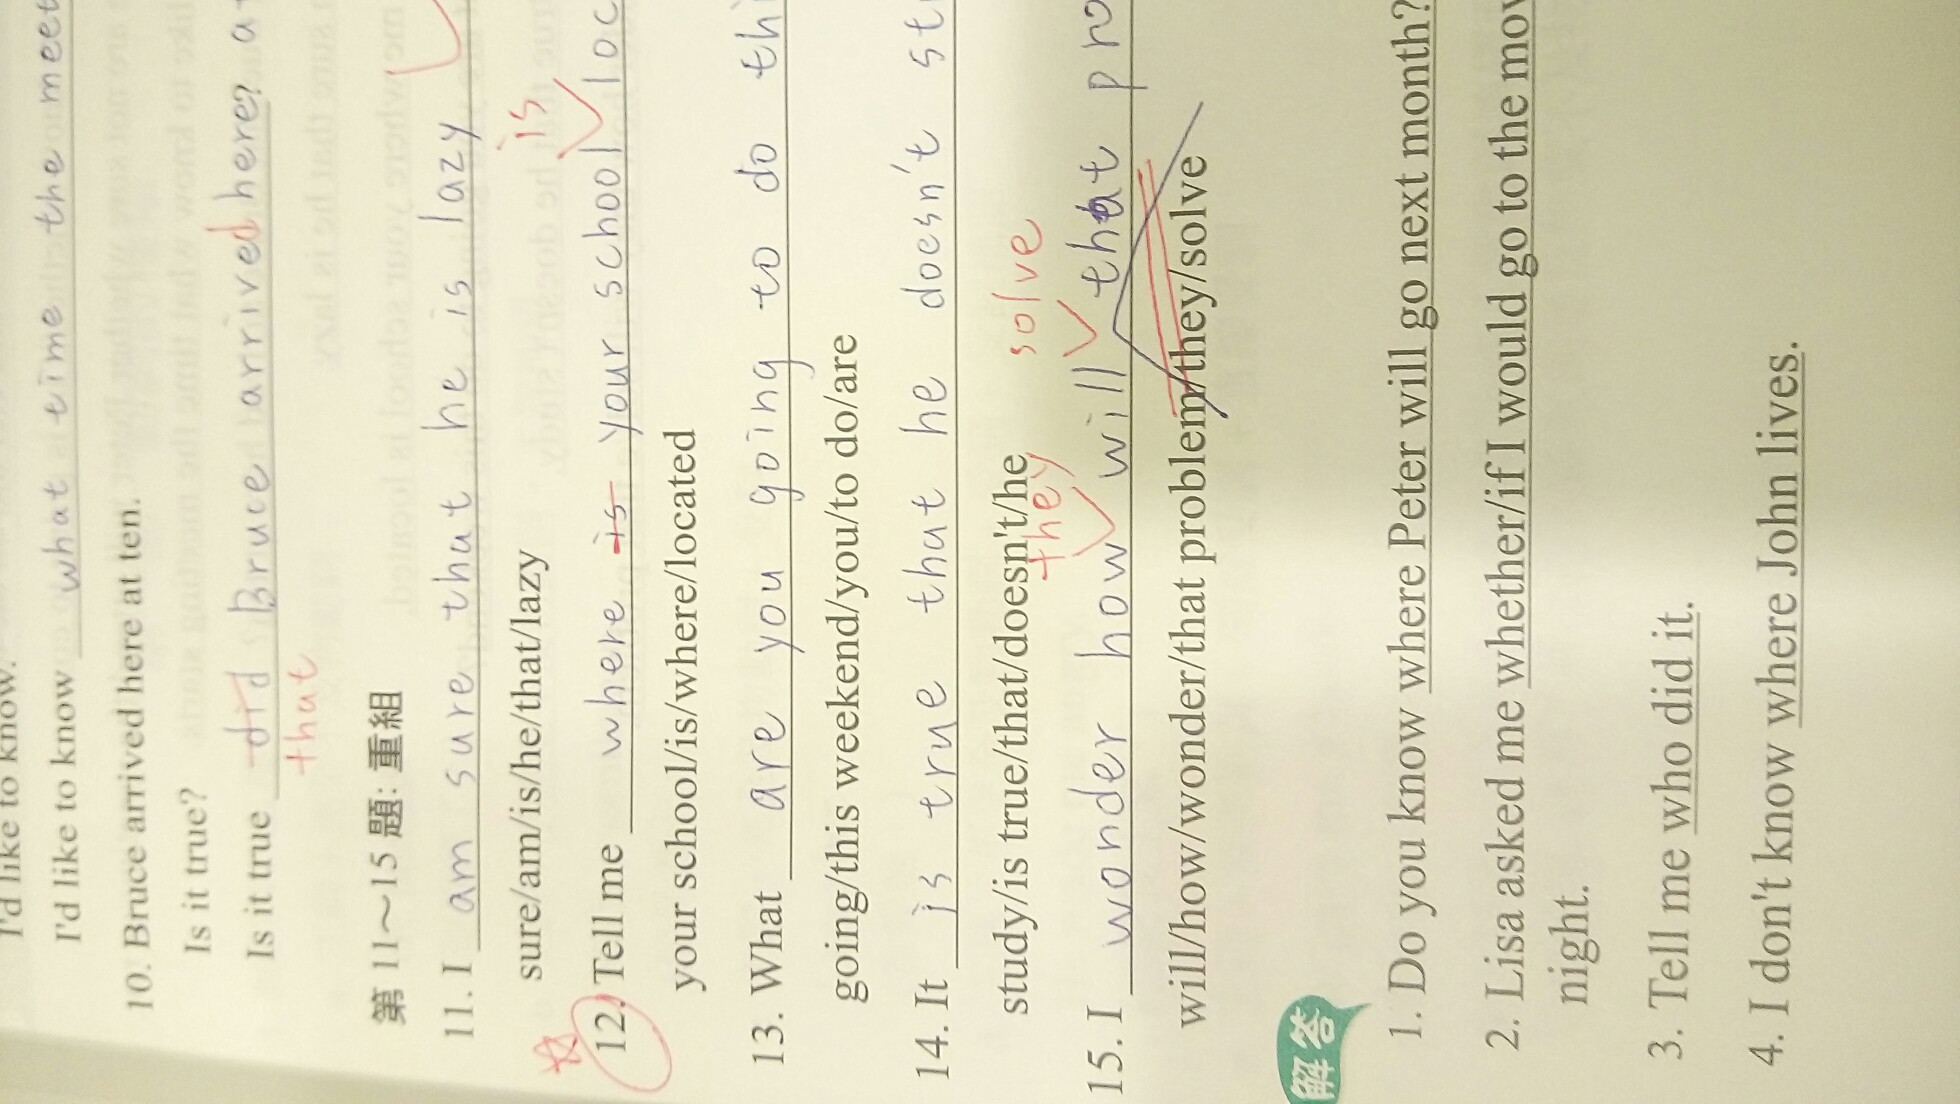 I'd like to know.
I'd like to know what time the meet
10. Bruce arrived here at ten.
Is it true?
Is it true did Bruce arrived here? a
that
第 11～15 題: 重組
11. I am sure that he is lazy
sure/am/is/he/that/lazy
is
12. Tell me where is your school loc
your school/is/where/located
13. What are you going to do thi
going/this weekend/you/to do/are
14. It is true that he doesn't st
study/is true/that/doesn't/he
they solve
15. I wonder how will that pro
will/how/wonder/that problem/they/solve
解答
1. Do you know where Peter will go next month?
2. Lisa asked me whether/if I would go to the mov
night.
3. Tell me who did it.
4. I don't know where John lives.